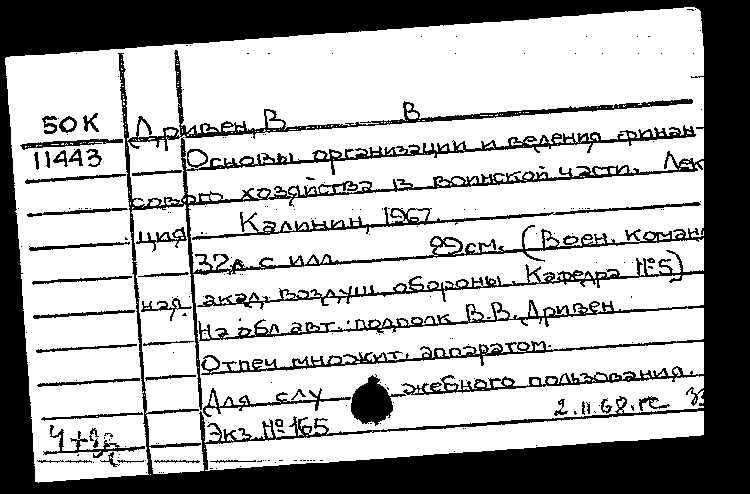 50К Дривен, В В
11443 Основы организации и ведения финан-
сового хозяйства в воинской части. Лек
ция. Калинин, 1967.
32л. с илл. 29см. (Воен. коман
ная акад. воздуш. обороны. Кафедра №5)
На обл авт.: подполк В.В. Дривен.
Отпеч множит. аппаратом.
Для служебного пользования.
Экз. №165 2.II.68.